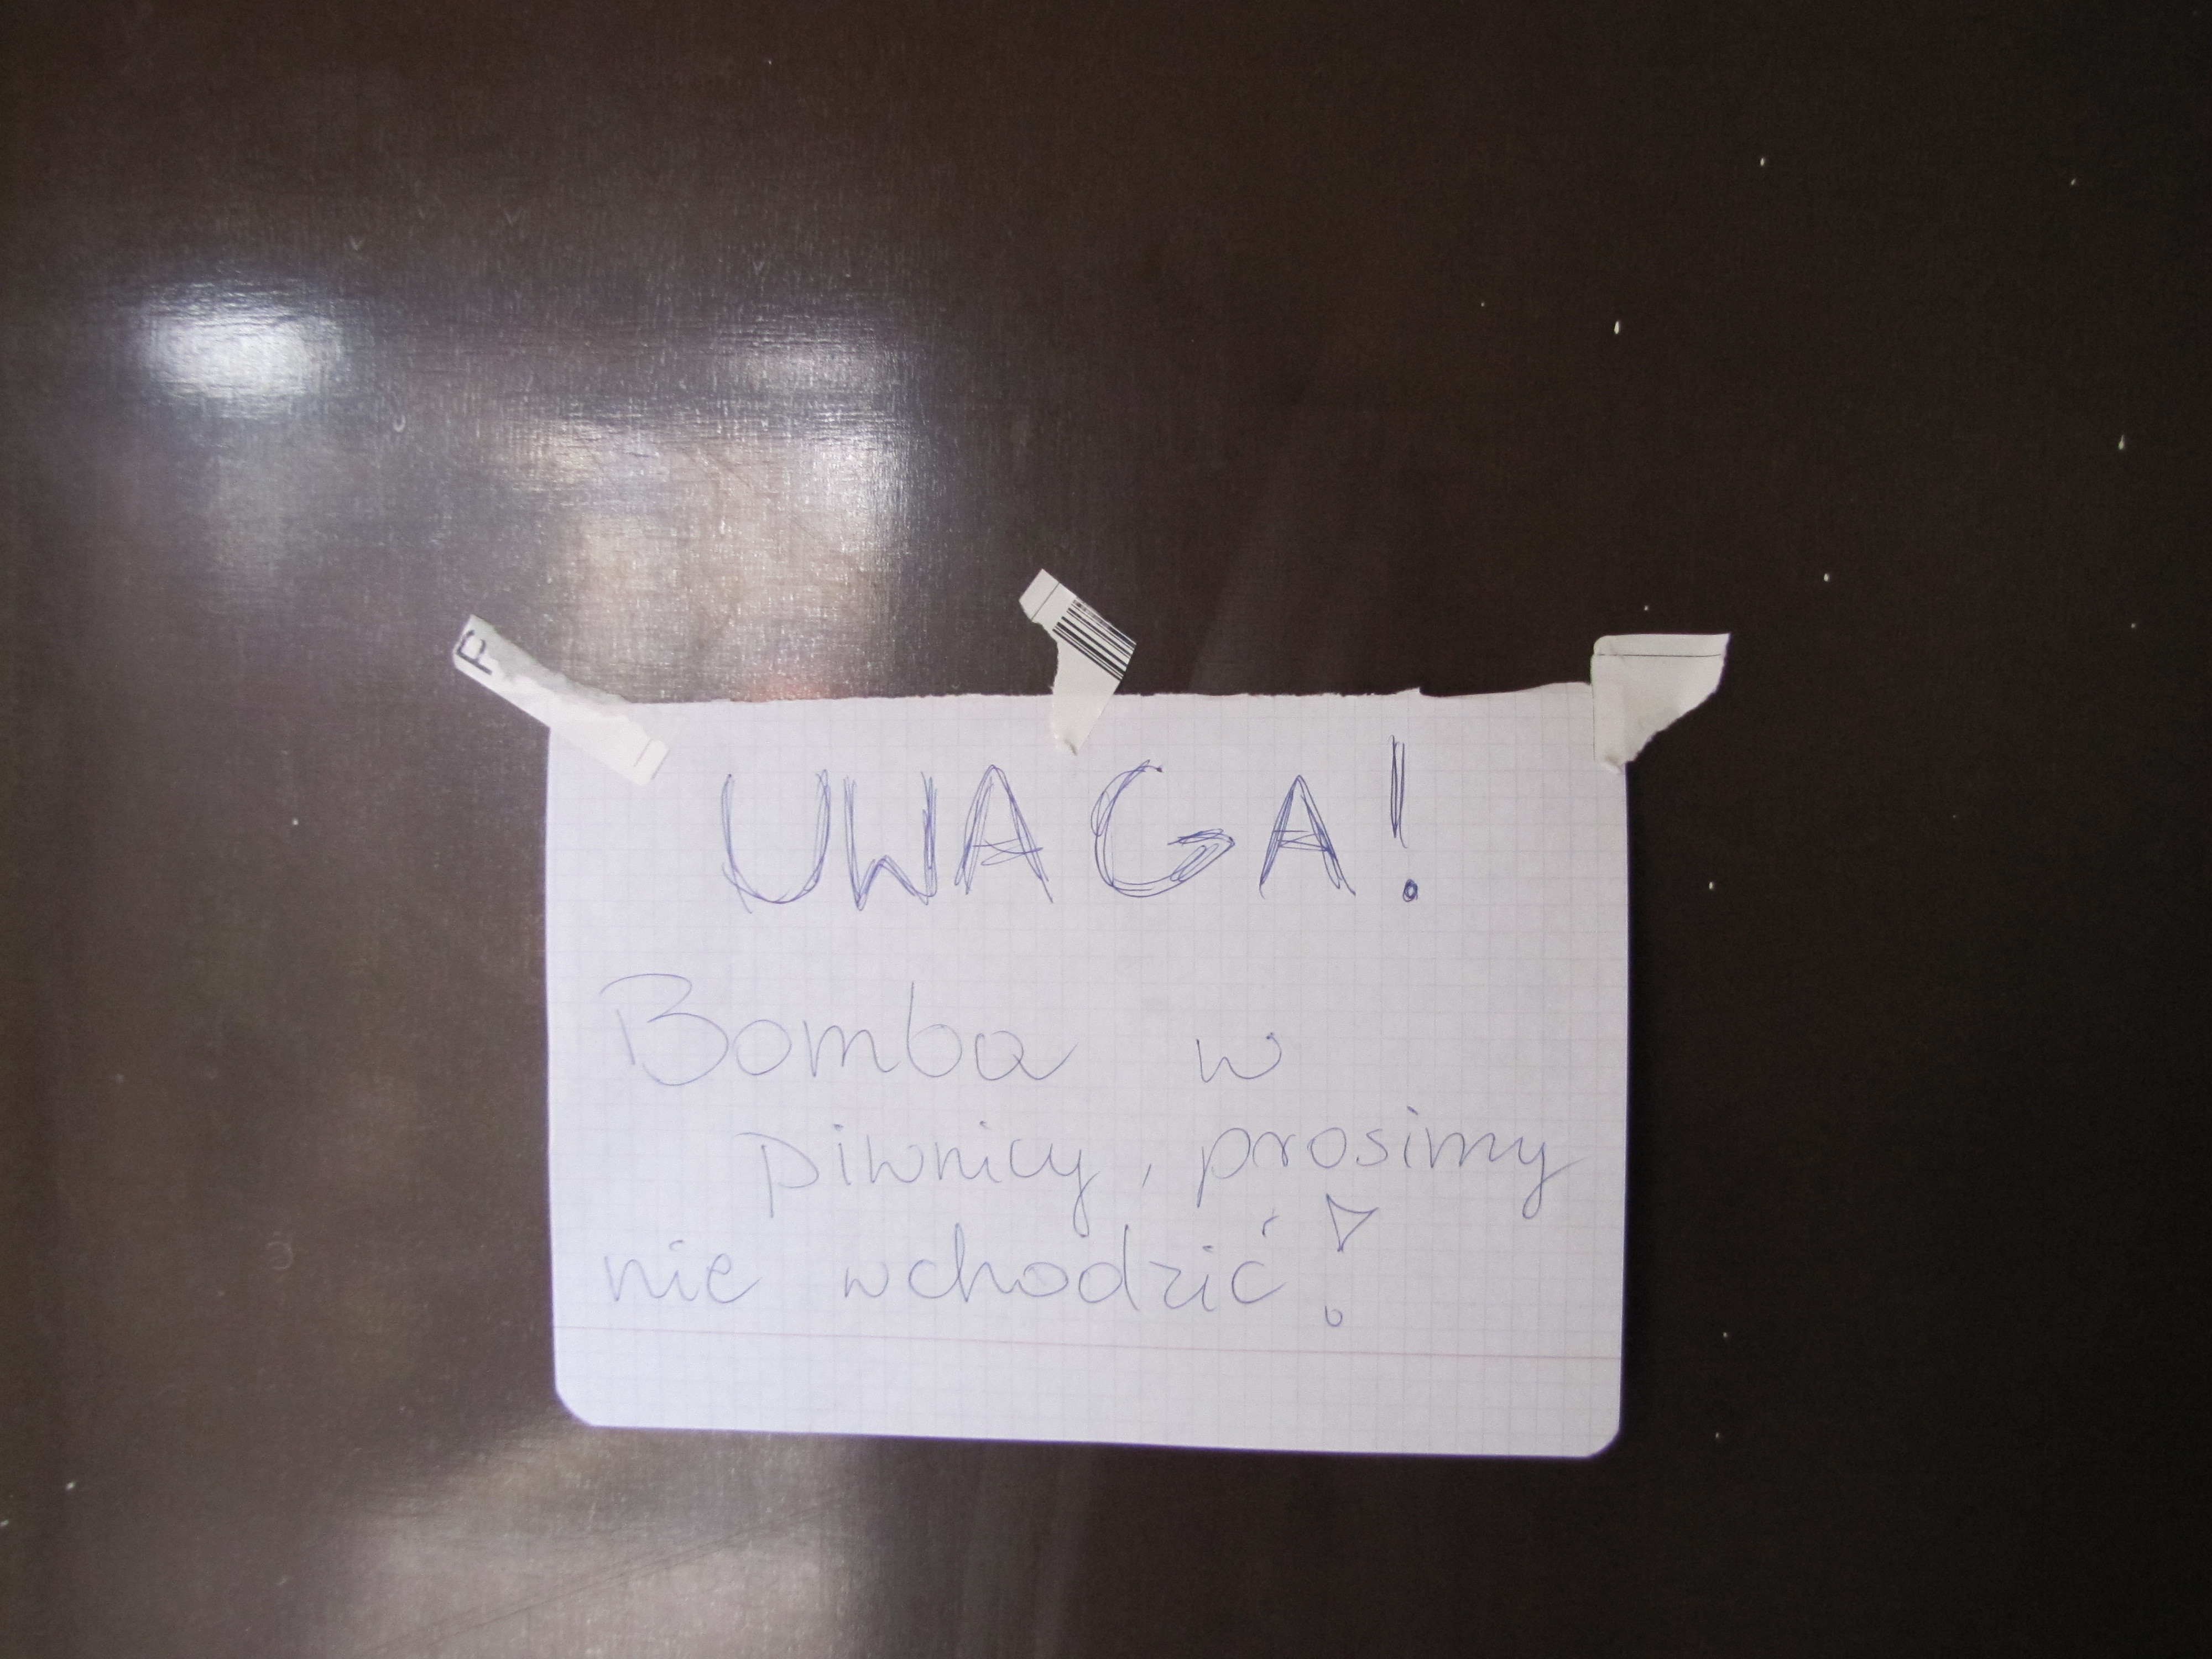 UWAGA!
Bomba w
piwnicy, prosimy
nie wchodzić!